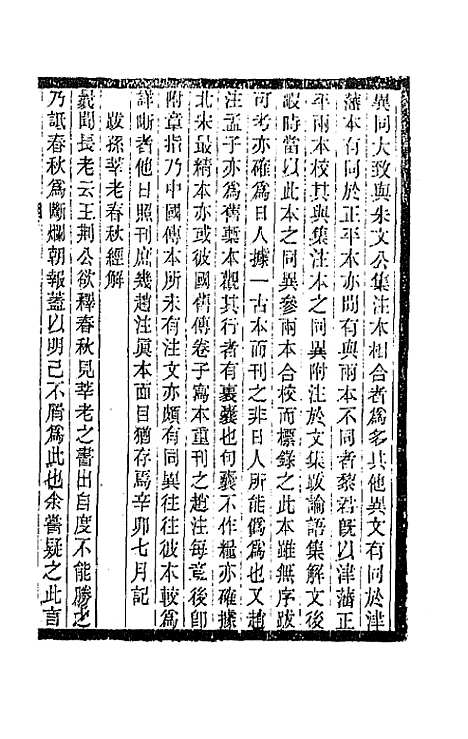 異同大致與朱文公集注本相合者爲多其他異文有同於津
藩本有同於正平本亦間有與兩本不同者黎君旣以津藩正
平兩本校其與集注本之同異附注於文集跋論語集解文後
設時當以此本之同異參兩本合校而標錄之此本雖無序跋
可考亦確爲日人據一古本而刊之非日人所能僞爲也又趙
注孟子亦爲舊槧本觀其行者有裹囊也句囊不作糧亦確據
北宋最精本亦或彼國舊傳卷子寫本重刊之趙注每章後卽
附章指乃中國傳本所未有注文亦頗有同異往往彼本較爲
詳晰者他日照刊庶幾趙注眞本面目猶存焉辛卯七月記
跋孫莘老春秋經解
曩聞長老云王荆公欲釋春秋見莘老之書出自度不能勝之
乃詆春秋爲斷爛朝報蓋以明己不屑爲此也余嘗疑之此言